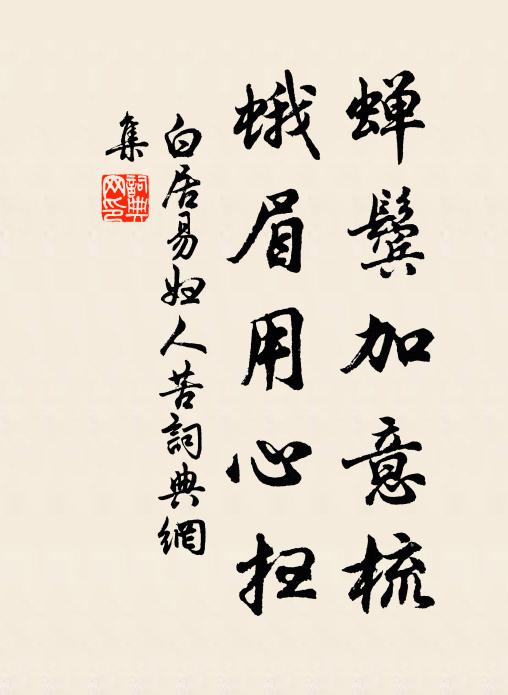 蝉鬓加意梳
蛾眉用心扫
白居易妇人苦詞典網
集
詞典
网印